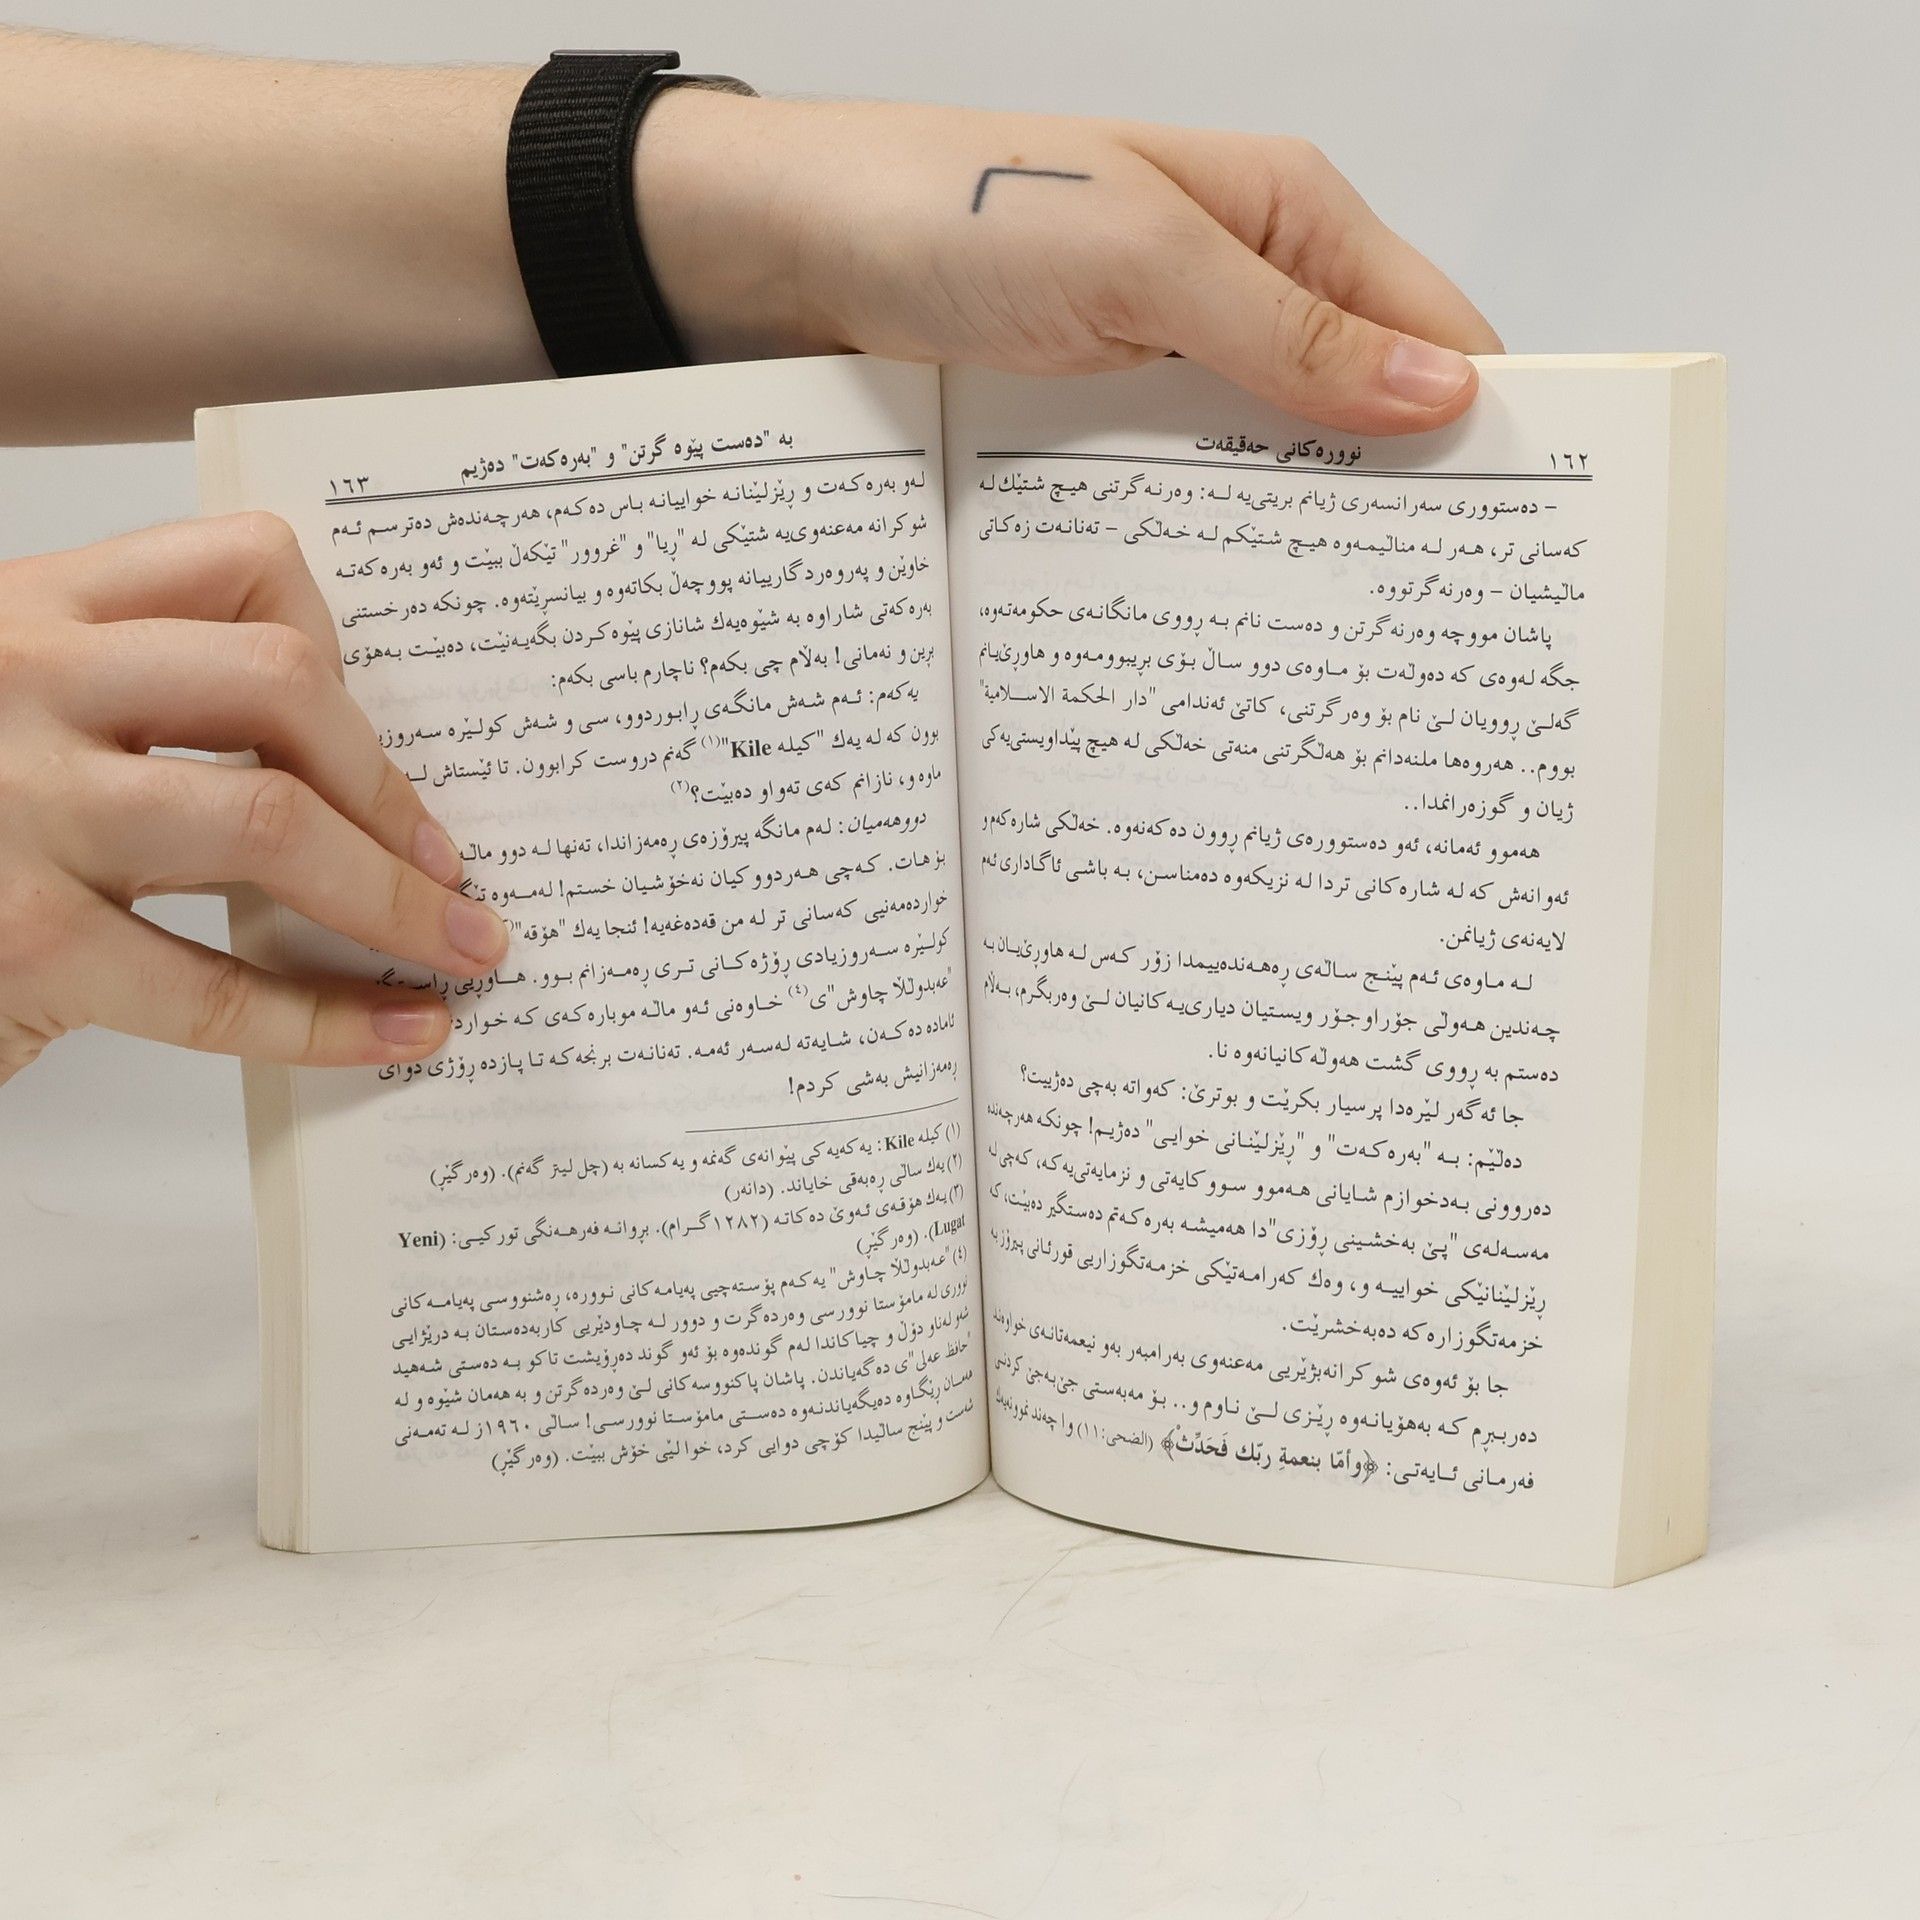 ١٦٢
نوورەكانی حەقیقەت
– دەستووری سەرانسەری ژیانم بریتی‌یە لـە: وەرنـەگرتنی هیـچ شـتێك لـە
كەسانی تر، هـەر لـە مناڵیمـەوە هیـچ شـتێكم لـە خـەڵكی – تەنانـەت زەكـاتی
ماڵیشیان – وەرنەگرتووە.
پاشان مووچە وەرنەگرتن و دەست نانم بـە ڕووی مانگانـەی حكومەتـەوە،
جگە لـەوەی كە دەوڵەت بۆ مـاوەی دوو سـاڵ بـۆی بڕیبوومـەوە و هاوڕێ‌یـانم
گەلـێ ڕوویان لـێ نام بۆ وەرگرتنی، كاتێ ئەندامی "دار الحكمة الاسـلامية"
بووم.. هەروەها ملنەدانم بۆ هەڵگرتنی منەتی خەڵكی لە هیچ پێداویستی‌یەكی
ژیان و گوزەرانمدا..
هەموو ئەمانە، ئەو دەستوورەی ژیانم ڕوون دەكەنەوە. خەڵكی شارەكەم و
ئەوانەش كە لە شارەكانی تردا لە نزیكەوە دەمناسـن، بـە باشی ئاگاداری ئەم
لایەنەی ژیانمن.
لـە مـاوەی ئـەم پێنـج سـاڵەی ڕەهـەندەییمدا زۆر كـەس لـە هاوڕێ‌یـان بـە
چـەندین هـەوڵی جۆراوجـۆر ویسـتیان دیاری‌یـەكانیان لـێ وەربگرم، بـەڵام
دەستم بە ڕووی گشت هەوڵەكانیانەوە نا.
جا ئەگەر لێرەدا پرسیار بكرێت و بوترێ: كەواتە بەچی دەژییت؟
دەڵێم: بـە "بەرەكـەت" و "ڕێزلێنـانی خوایـی" دەژیـم! چونكە هەرچەندە
دەروونی بـەدخوازم شـایانی هـەموو سـووكایەتی و نزمایەتی‌یەكە، كەچی لە
مەسـەلەی "پـێ بەخشـینی ڕۆزی"دا هەمیشـە بەرەكـەتم دەستگیر دەبێت، كە
ڕێزلێنانێكی خواییـە و، وەك كەرامـەتێكی خزمـەتگوزاریی قورئـانی پیرۆز بە
خزمەتگوزارەكە دەبەخشرێت.
جا بۆ ئەوەی شوكرانەبژێریی مەعنەوی بەرامبەر بەو نیعمەتانـەی خواوەند
دەربـبڕم كـە بەهۆیانـەوە ڕێـزی لـێ نـاوم و.. بـۆ مەبەستی جێ‌بەجێ كردنـی
فەرمـانی ئـایەتـی: ﴿وأمّا بنعمةِ ربّك فَحَدِّثْ﴾ (الضحى:١١) وا چەند نموونەیەك
بە "دەست پێوە گرتن" و "بەرەكەت" دەژیم
١٦٣
لـەو بەرەكـەت و ڕێزلـێنانـە خواییانـە باس دەكـەم، هەرچـەندەش دەترسـم ئـەم
شوكرانە مەعنەوی‌یە شتێكی لە "ڕیا" و "غروور" تێكەڵ ببێت و ئەو بەرەكەتـە
خاوێن و پەروەردگارییانە پووچەڵ بكاتەوە و بیانسڕێتەوە. چونكە دەرخستنی
بەرەكەتی شاراوە بە شێوەیەك شانازی پێوەكـردن بگەیـەنێت، دەبێـت بـەهۆی
بڕین و نەمانی! بەڵام چی بكەم؟ ناچارم باسی بكەم:
یەكەم: ئـەم شـەش مانگـەی ڕابـوردوو، سی و شەش كولـێرە سـەروزیـ
بوون كە لە یەك "كیلە Kile"(١) گەنم دروست كرابوون. تا ئێستاش لـە
ماوە و، نازانم كەی تەواو دەبێت؟(٢)
دووهەمیان: لەم مانگە پیرۆزەی ڕەمەزاندا، تەنها لـە دوو ماڵـە
بۆ هات. كـەچی هـەردوو كیان نەخۆشـیان خستم! لـەمـەوە
خواردەمەنیی كەسانی تر لە من قەدەغەیە! ئنجا یەك "هۆقە"
كولـێرە سـەروزیادی ڕۆژەكـانی تـری ڕەمـەزانم بـوو. هـاوڕیی
"عەبدوڵڵا چاوش"ی(٤) خـاوەنی ئـەو ماڵـە موبارەكـەی كـە
ئامادە دەكـەن، شـایەتە لەسـەر ئەمـە. تەنانـەت برنجەكـە تـا پـازدە ڕۆژی دوای
ڕەمەزانیش بەشی كردم!
(١) كیلە Kile: یەكەیەكی پێوانەی گەنمە و یەكسانە بە (چل لیتر گەنم). (وەرگێڕ)
(٢) یەك ساڵی ڕەبەقی خایاند. (دانەر)
(٣) یـەك هۆقـەی ئـەوێ دەكاتـە (١٢٨٢ گـرام). بڕوانـە فەرهـەنگی توركیـی: (Yeni
Lugat). (وەرگێڕ)
(٤) "عـەبدوڵڵا چـاوش" یەكـەم پۆستەچیی پەیامـەكانی نـوورە، ڕەشنووسـی پەیامـەكانی
نووری لە مامۆستا نوورسی وەردەگرت و دوور لـە چـاودێریی كاربەدەستان بـە درێژایـی
شەو لەناو دۆڵ و چیاكاندا لـەم گوندەوە بۆ ئەو گوند دەڕۆیشت تاكو بـە دەستی شـەهید
"حافظ عەلی"ی دەگەیاندن. پاشان پاكنووسەكانی لـێ وەردەگرتن و بە هەمان شێوە و لـە
هەمـان ڕێگـاوە دەیگەیاندنـەوە دەسـتی مامۆسـتا نوورسـی! ساڵی ١٩٦٠ز لـە تەمـەنی
شەست و پێنج ساڵیدا كۆچی دوایی كرد، خوا لێی خۆش ببێت. (وەرگێڕ)